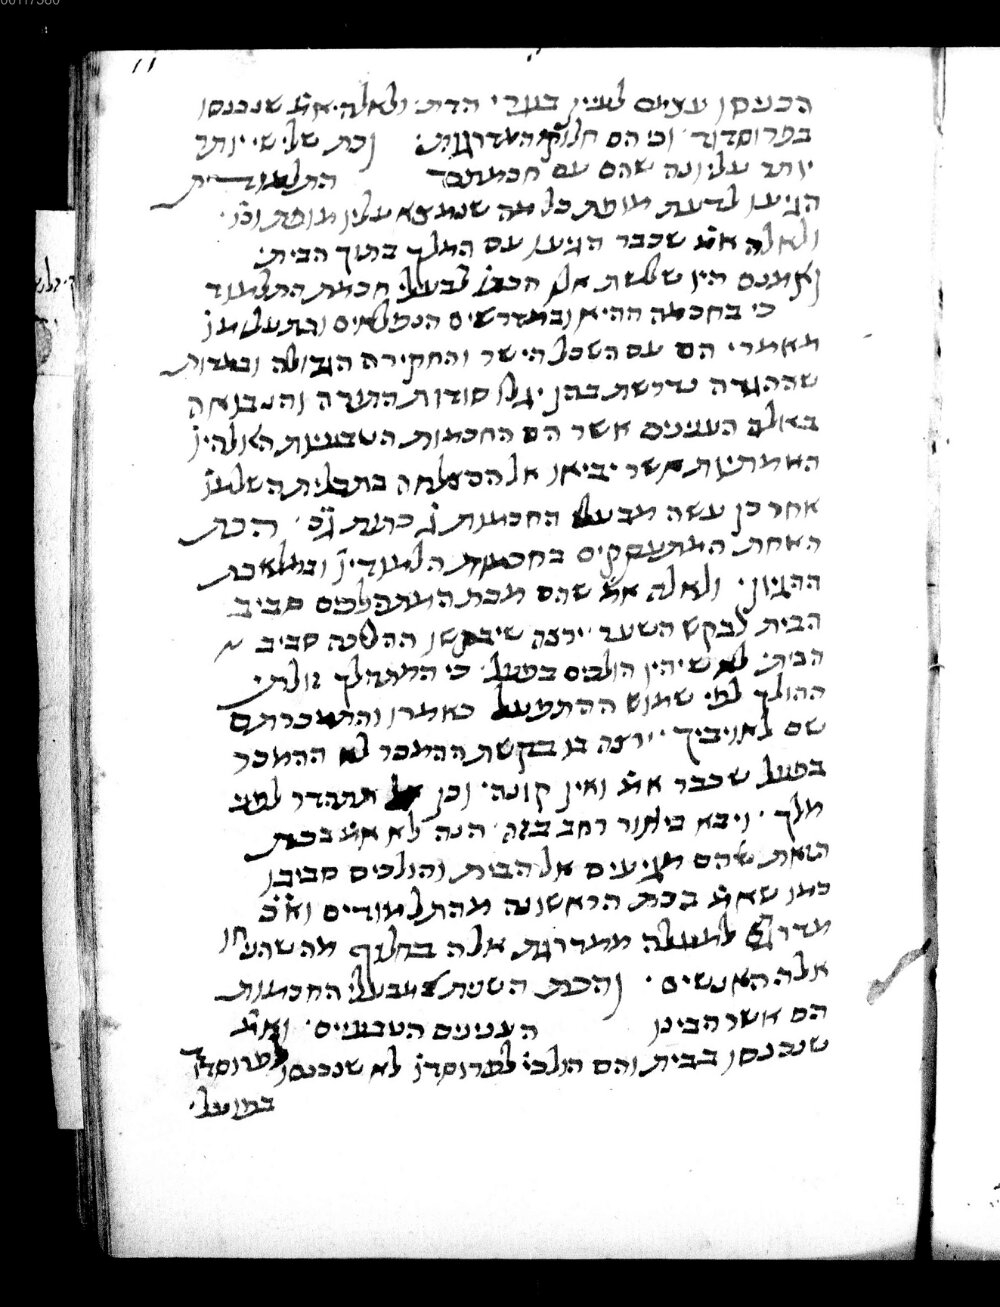 הכניסו עצמם לעיין בעקרי הדת ולאלה אמ' שנכנסו
בפרוסדור וכי הם חלוקי המדרגות וכת שלישי יותר
יותר עליונה שהם עם חכמתם התלמודית
הגיעו לדעת מופת כל מה שנמצא עליו מופת וכו'
ולאלה אמ' שכבר הגיעו עם המלך בתוך הבית
ואמנם היו שלשת אלו הכתו' לבעלי חכמת התלמוד
כי בחכמה ההיא ובמדרשים הנפלאים ובתעלומו'
מאמרי הם עם השכל הישר והחקירה הגדולה ובמדות
שההגדה נדרשת בהן יגלו סודות התורה והנבואה
באלו העניינים אשר הם החכמות הטבעיות האלהיו'
האמתיות אשר יביאו אל ההצלחה בתכלית השלמו'
אחר כן עשה מבעלי החכמות ג' כתות ג"כ הכת
האחת המתעסקים בחכמות הלמודיו' ובמלאכת
ההגיון ולאלה אמ' שהם מכת המתהלכים סביב
הבית לבקש השער ירצה שיבקשו ההליכה סביב
הבית לא שיהיו הולכים בפעל כי המתהלך זולתי
ההולך לפי שמוש ההתפעל כאמרו והתמכרתם
שם לאויביך ירצה בו בקשת ההמכר לא ההמכר
בפעל שכבר אמ' ואין קונה וכן אל תתהדר לפני
מלך ויבא ביאור רחב בזה הנה לא אמ' בכת
הזאת שהם מגיעים אל הבית והולכים סביבו
כמו שאמ' בכת הראשונה מהתלמודיים וא"כ
מדרגתם למעלה ממדרגת אלה בחלוף מה שהניחו
אלה האנשים והכת השנית מבעלי החכמות
הם אשר הבינו העניינים הטבעיים ואמ'
שנכנסו בבית והם הולכי' לפרוסדו' לא שנכנסו לפרוסדו'
בפועל